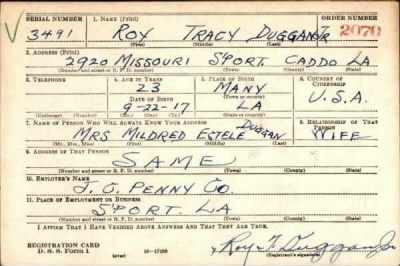 SERIAL NUMBER 1. NAME (Print) ORDER NUMBER
3491 ROY TRACY DUGGAN JR 2070
(First) (Middle) (Last)
2. ADDRESS (Print)
2920 MISSOURI S'PORT. CADDO LA
(Number and street or R. F. D. number) (Town) (County) (State)
3. TELEPHONE 4. AGE IN YEARS 5. PLACE OF BIRTH 6. COUNTRY OF CITIZENSHIP
23 MANY
DATE OF BIRTH (Town or county) U.S.A.
9-22-17 LA
(Exchange) (Number) (Mo.) (Day) (Yr.) (State or country)
7. NAME OF PERSON WHO WILL ALWAYS KNOW YOUR ADDRESS 8. RELATIONSHIP OF THAT PERSON
MRS MILDRED ESTELE DUGGAN WIFE
(Mr., Mrs., Miss) (First) (Middle) (Last)
9. ADDRESS OF THAT PERSON
SAME
(Number and street or R. F. D. number) (Town) (County) (State)
10. EMPLOYER'S NAME
J. C. PENNY CO.
11. PLACE OF EMPLOYMENT OR BUSINESS
S'PORT. LA
(Number and street or R. F. D. number) (Town) (County) (State)
I AFFIRM THAT I HAVE VERIFIED ABOVE ANSWERS AND THAT THEY ARE TRUE.
REGISTRATION CARD
D. S. S. Form 1 16-17105 Roy T. Duggan Jr
(over) (Registrant's signature)